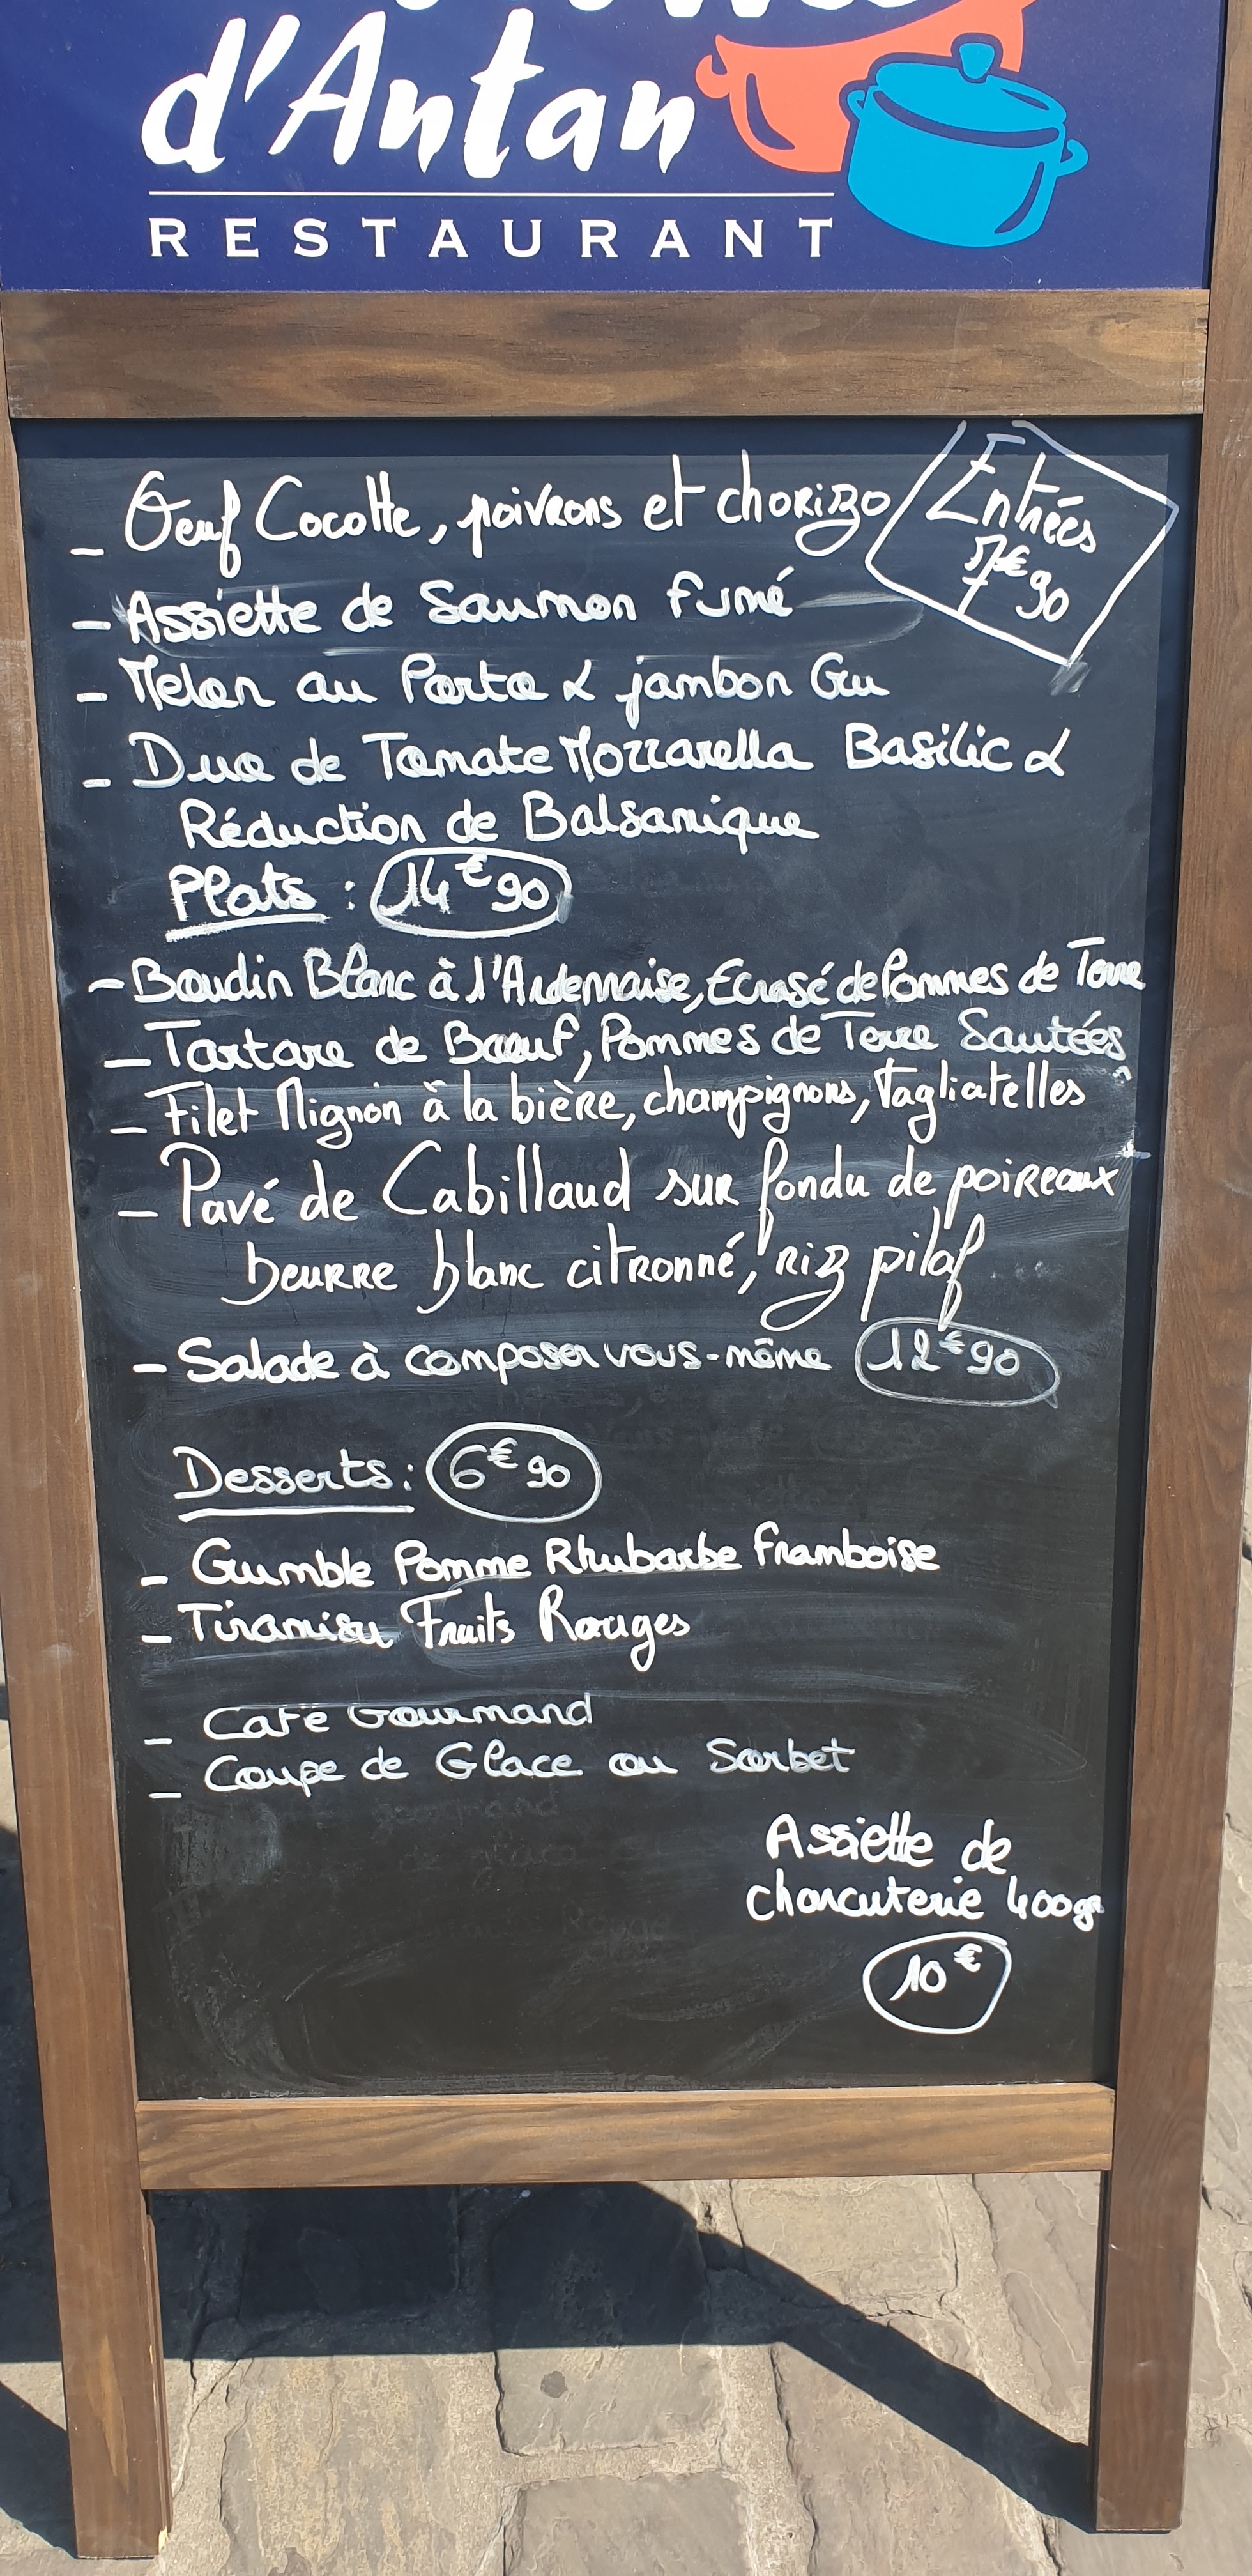 d'Antan
RESTAURANT
Entrées
7€90
- Oeuf Cocotte, poivrons et chorizo
- Assiette de Saumon Fumé
- Melon au Porto & jambon Cru
- Duo de Tomate Mozzarella Basilic &
Réduction de Balsamique
Plats : 14€90
- Boudin Blanc à l'Ardennaise, Ecrasé de Pommes de Terre
- Tartare de Bœuf, Pommes de Terre Sautées
- Filet Mignon à la bière, champignons, Tagliatelles
- Pavé de Cabillaud sur fondu de poireaux
beurre blanc citronné, riz pilaf
- Salade à composer vous-même 12€90
Desserts : 6€90
- Crumble Pomme Rhubarbe Framboise
- Tiramisu Fruits Rouges
- Café Gourmand
- Coupe de Glace ou Sorbet
Assiette de
charcuterie 400gr
10€